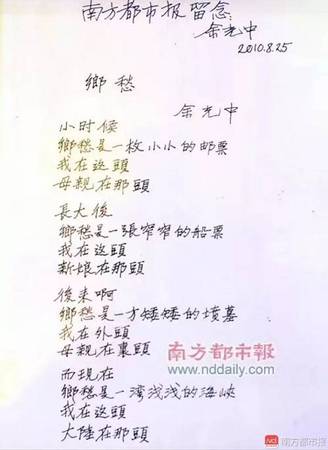 南方都市报留念
余光中
2010.8.25
鄉愁
余光中
小时候
鄉愁是一枚小小的邮票
我在这頭
母親在那頭
長大後
鄉愁是一張窄窄的船票
我在这頭
新娘在那頭
後来啊
鄉愁是一方矮矮的墳墓
我在外頭
母親在裏頭
南方都市報
www.nddaily.com
而现在
鄉愁是一湾浅浅的海峡
我在这頭
大陸在那頭
南方都市报